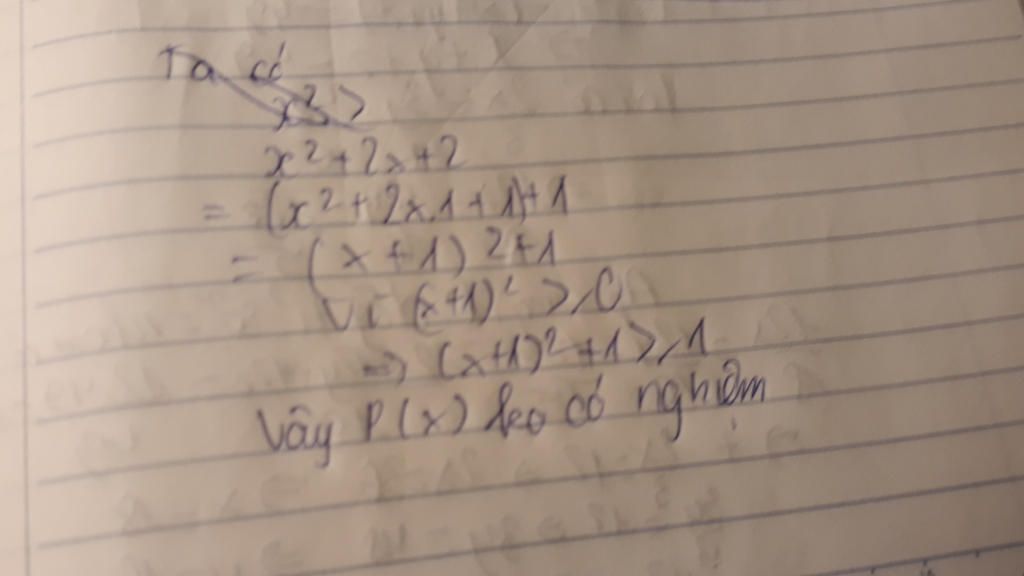 Ta có
x² >
x² + 2x + 2
= (x² + 2x.1 + 1) + 1
= (x + 1)² + 1
Vì (x+1)² ⩾ 0
=> (x+1)² + 1 ⩾ 1
Vậy P(x) ko có nghiệm